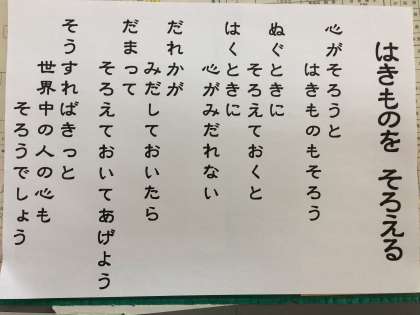 はきものを　そろえる
心がそろうと
はきものもそろう
ぬぐときに
そろえておくと
はくときに
心がみだれない
だれかが
みだしておいたら
だまって
そろえておいてあげよう
そうすればきっと
世界中の人の心も
そろうでしょう